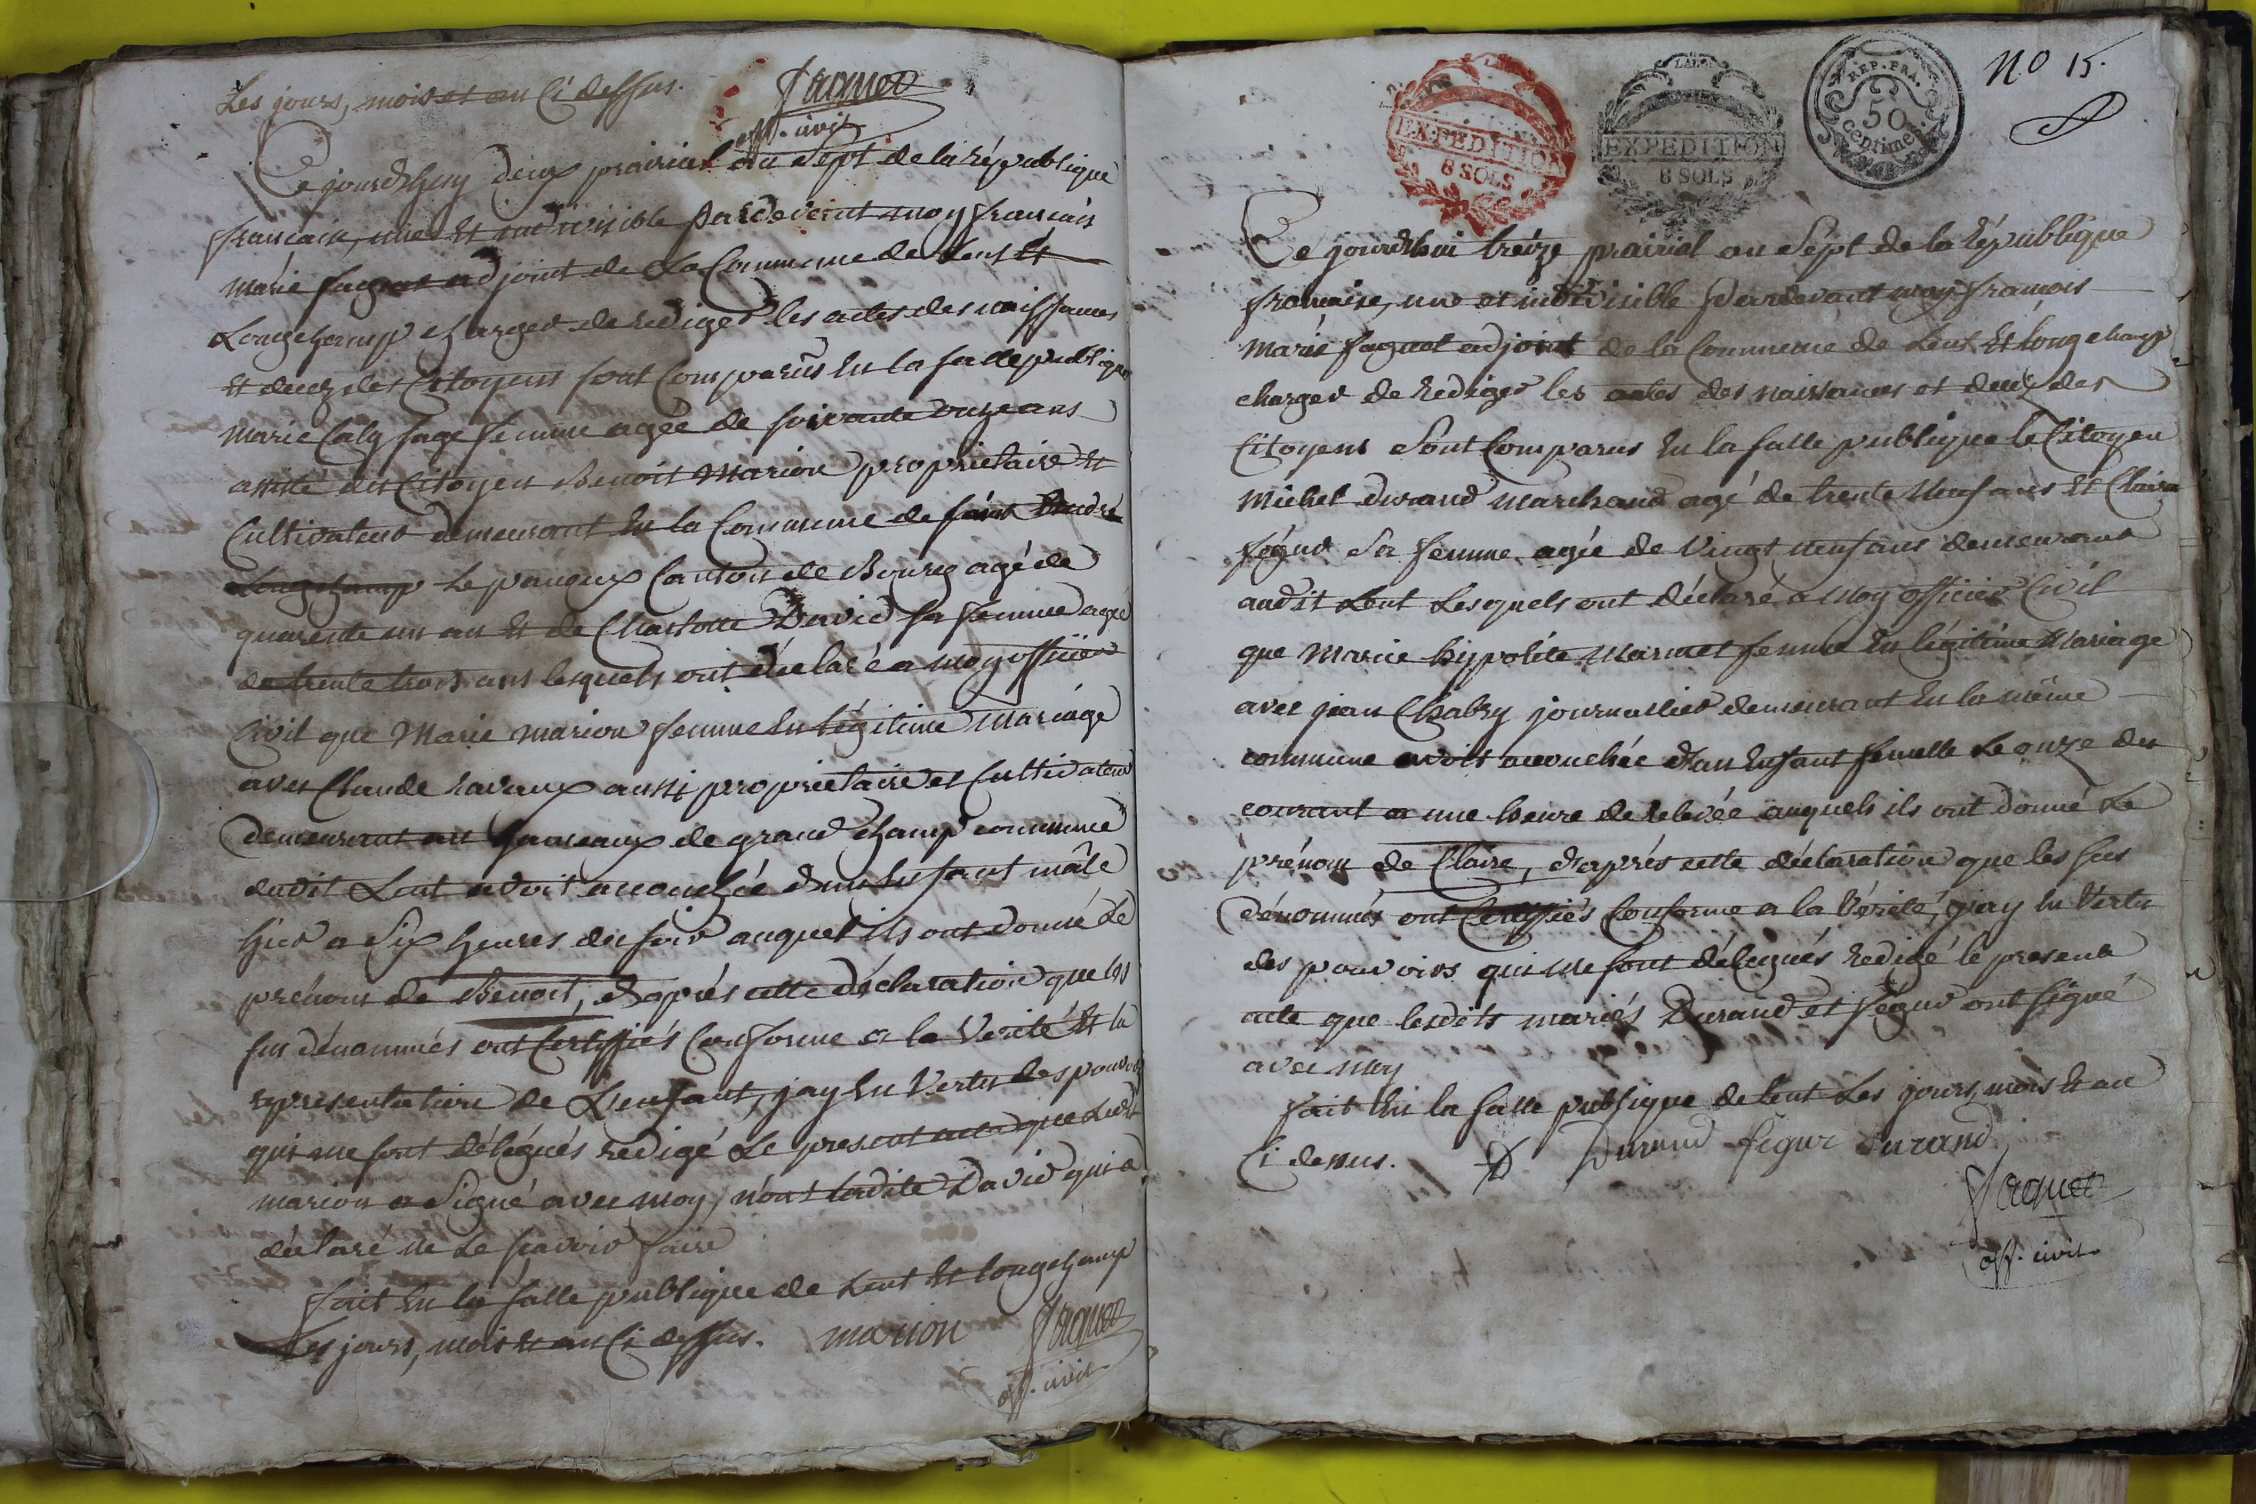 Les jours, mois et an Ci dessus. faguet
off. civil
Ce jourdhuy deux prairial an Sept de la république
française, une et indivisible pardevant moy françois
marie faguet adjoint de La Commune de Lent et
Longchamp charger de rediger les actes des naissances
et deces des Citoyens sont Comparus en la salle publique
marie Caly sage femme agée de soixante onze ans
assisté du Citoyen Benoit Marion propriétaire et
Cultivateur demeurant en la Commune de saint andré
Le panoux Canton de Bourg agé de
quarente un an et de Charlotte David sa femme agée
de trente trois ans lesquels ont déclaré a moy officier
Civil que Marie marion femme en légitime mariage
avec Claude ravaux aussi proprietaire et Cultivateur
demeurant au hameaux de grand champ commune
dudit Lent avoit accouchée d'un enfant mâle
hier a Six heures du soir auquel ils ont donné Le
prénom de Benoit, d'après cette déclaration que les
sus dénommés ont Certiffiés Conforme a la Verité et la
représentation de L'enfant, jay en Vertu des pouvoirs
qui me sont délégués redigé Le present acte que Ledit
marion a Signé avec moy, non ladite David qui a
déclaré ne Le savoir faire
fait en la salle publique de Lent et longchamp
Les jours, mois et an Ci dessus. marion faguet
off. civil
REP. FRA. 50 centimes
EXPEDITION 8 SOLS
EXPEDITION 8 SOLS
N.o 15.
Ce jourdhui treize prairial an Sept de la république
française, une et indivisible pardevant moy françois
marie faguet adjoint de la Commune de Lent et longchamp
charger de rediger les actes des naissances et deces des
Citoyens Sont Comparus en la salle publique le Citoyen
Michel durand marchand agé de trente neuf ans et Claire
fégur Sa femme agée de Vingt neuf ans demeurant
audit Lent Lesquels ont déclaré a moy officier Civil
que Marie hypolite Marmet femme en légitime mariage
avec jean Chabry journallier demeurant en la même
commune avoit accouchée d'un enfant femelle Le onze du
courant a une heure de relevée auquels ils ont donné Le
prénom de Claire, d'après cette déclaration que les sus
dénommés ont Certiffiés Conforme a la Vérité, j'ay en Vertu
des pouvoirs qui me sont délegués redigé le present
acte que lesdits mariés Durand et fégur ont signé
avec moy
fait en la salle publique de lent Les jours, mois et an
Ci dessus. Durand fegur durand
faguet
off. civil